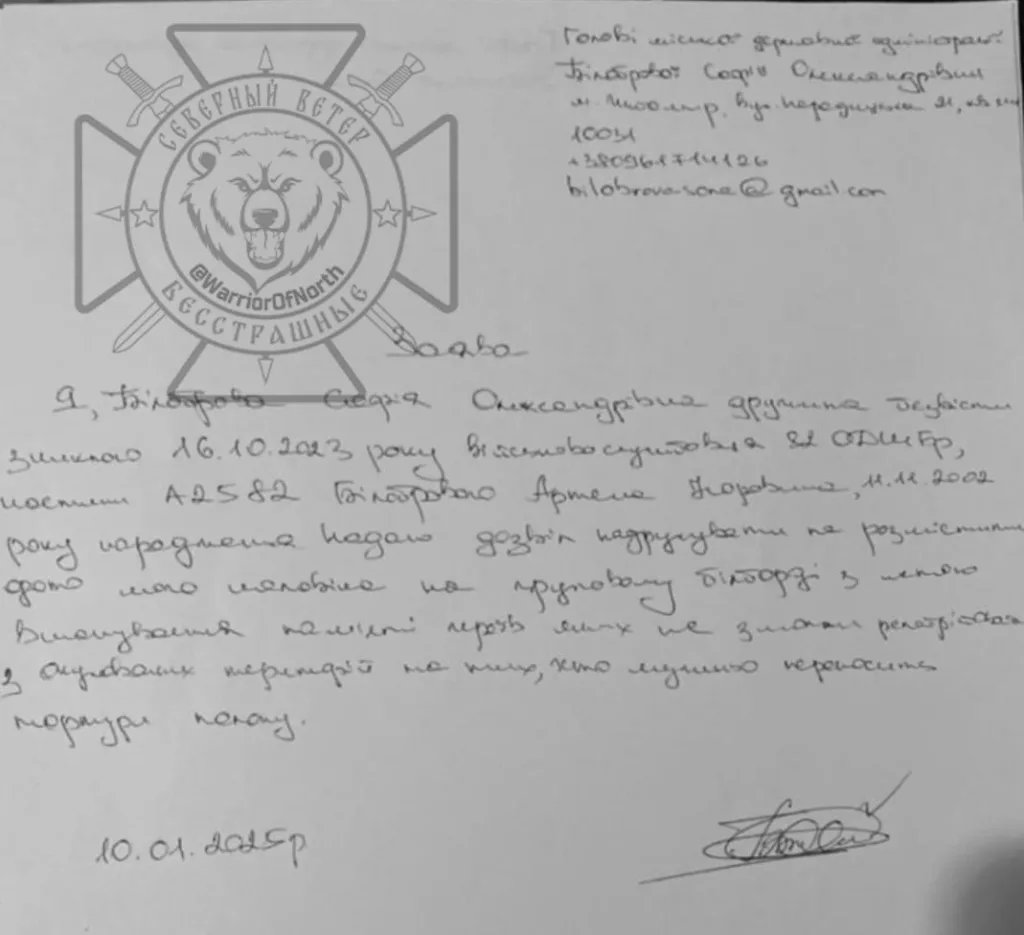 СЕВЕРНЫЙ ВЕТЕР
@WarriorOfNorth
БЕССТРАШНЫЕ
Голові міської державної адміністрації
Білобрової Софії Олександрівни
м. Житомир, вул.
10031
+380961714126
bilobrova.sona@gmail.com
Заява
Я, Білоброва Софія Олександрівна дружина безвісти
зниклого 16.10.2023 року військовослужбовця 82 ОДШБр,
частини А2582 Білоброва Артема Ігоровича, 11.11.2002
року народження надаю дозвіл надрукувати та розмістити
фото мого чоловіка на груповому білборді з метою
вшанування пам'яті героїв яких не змогли репатріювати
з окупованих територій та тих, хто мужньо переносить
тортури полону.
10.01.2025р